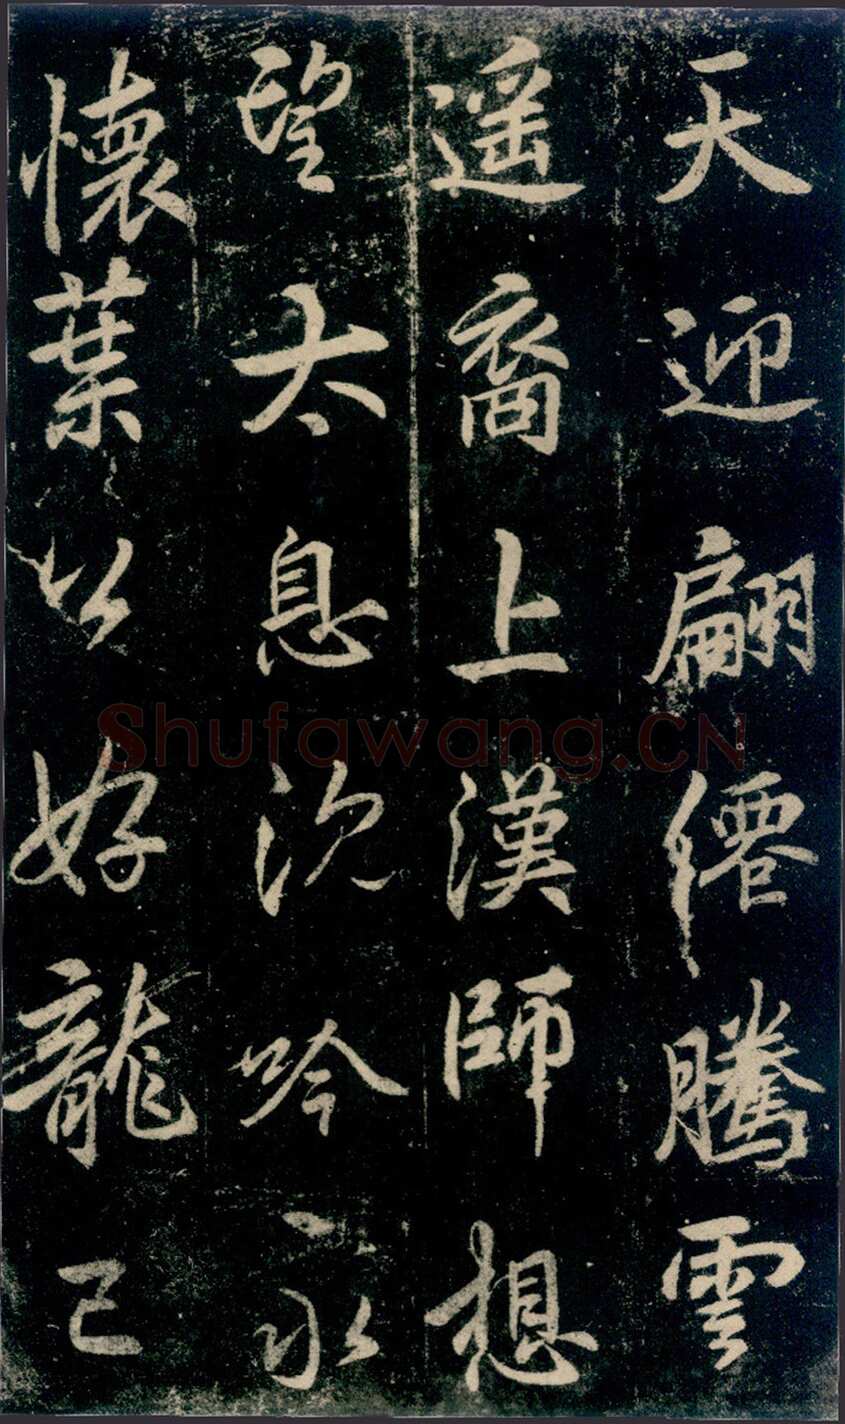 天迎翩僊騰雲
遥裔上漢師想
望太息沉吟永
懷葉公好龍已
Shufawang.CN